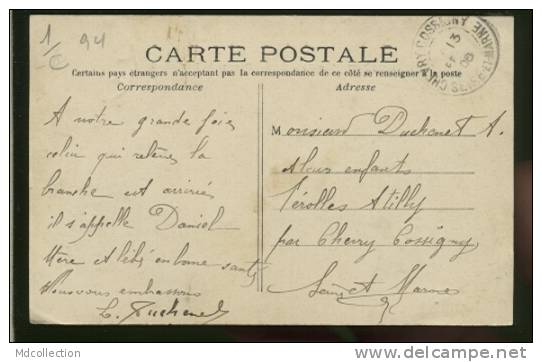 1/c 94
CARTE POSTALE
Certains pays étrangers n'acceptant pas la correspondance de ce côté se renseigner à la poste
Correspondance
Adresse
A notre grande joie
colin qui relève la
branche est arrivée
il s'appelle Daniel
Mère et bébé en bonne santé
Nous vous embrassons
L. Duchenet
Monsieur Duchenet A.
et leurs enfants
Férolles Atilly
par Chevry Cossigny
Seine et Marne
CHEVRY COSSIGNY
SEINE-ET-MARNE
13
08
MdCollection
http://www.delcampe.net